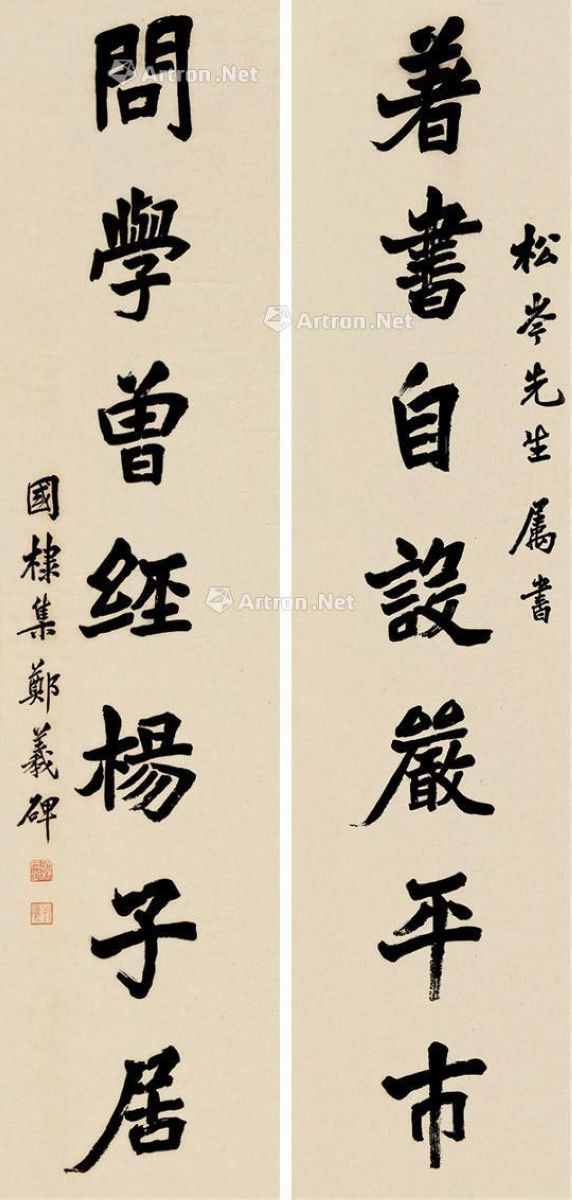 松岑先生属書
著書自設嚴平市
問學曾經楊子居
國棣集鄭羲碑
Artron.Net
Artron.Net
Artron.Net